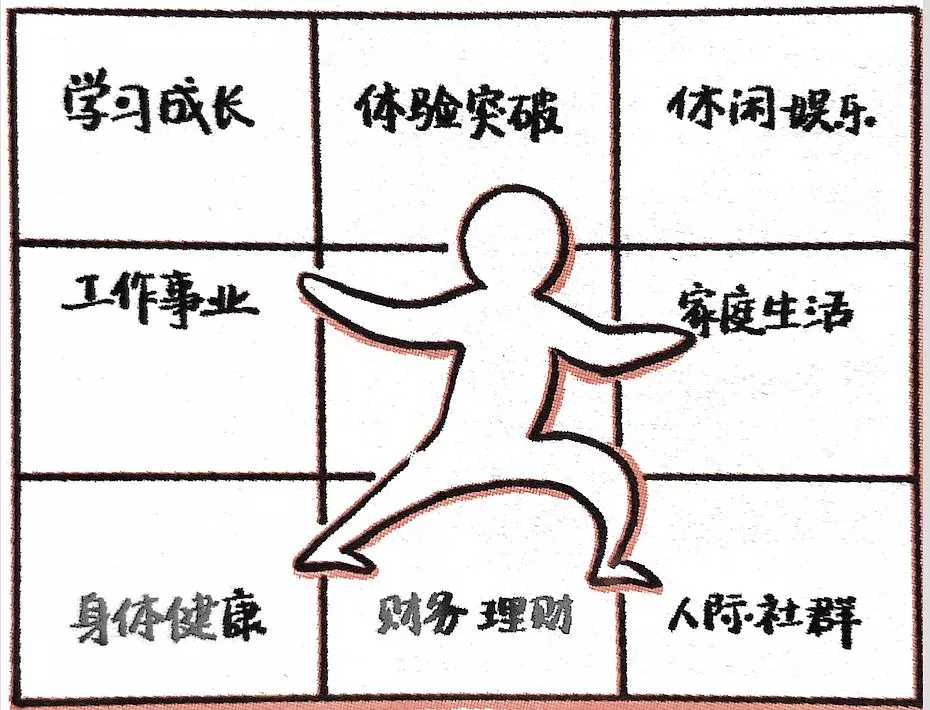 学习成长
体验突破
休闲娱乐
工作事业
家庭生活
身体健康
财务理财
人际·社群